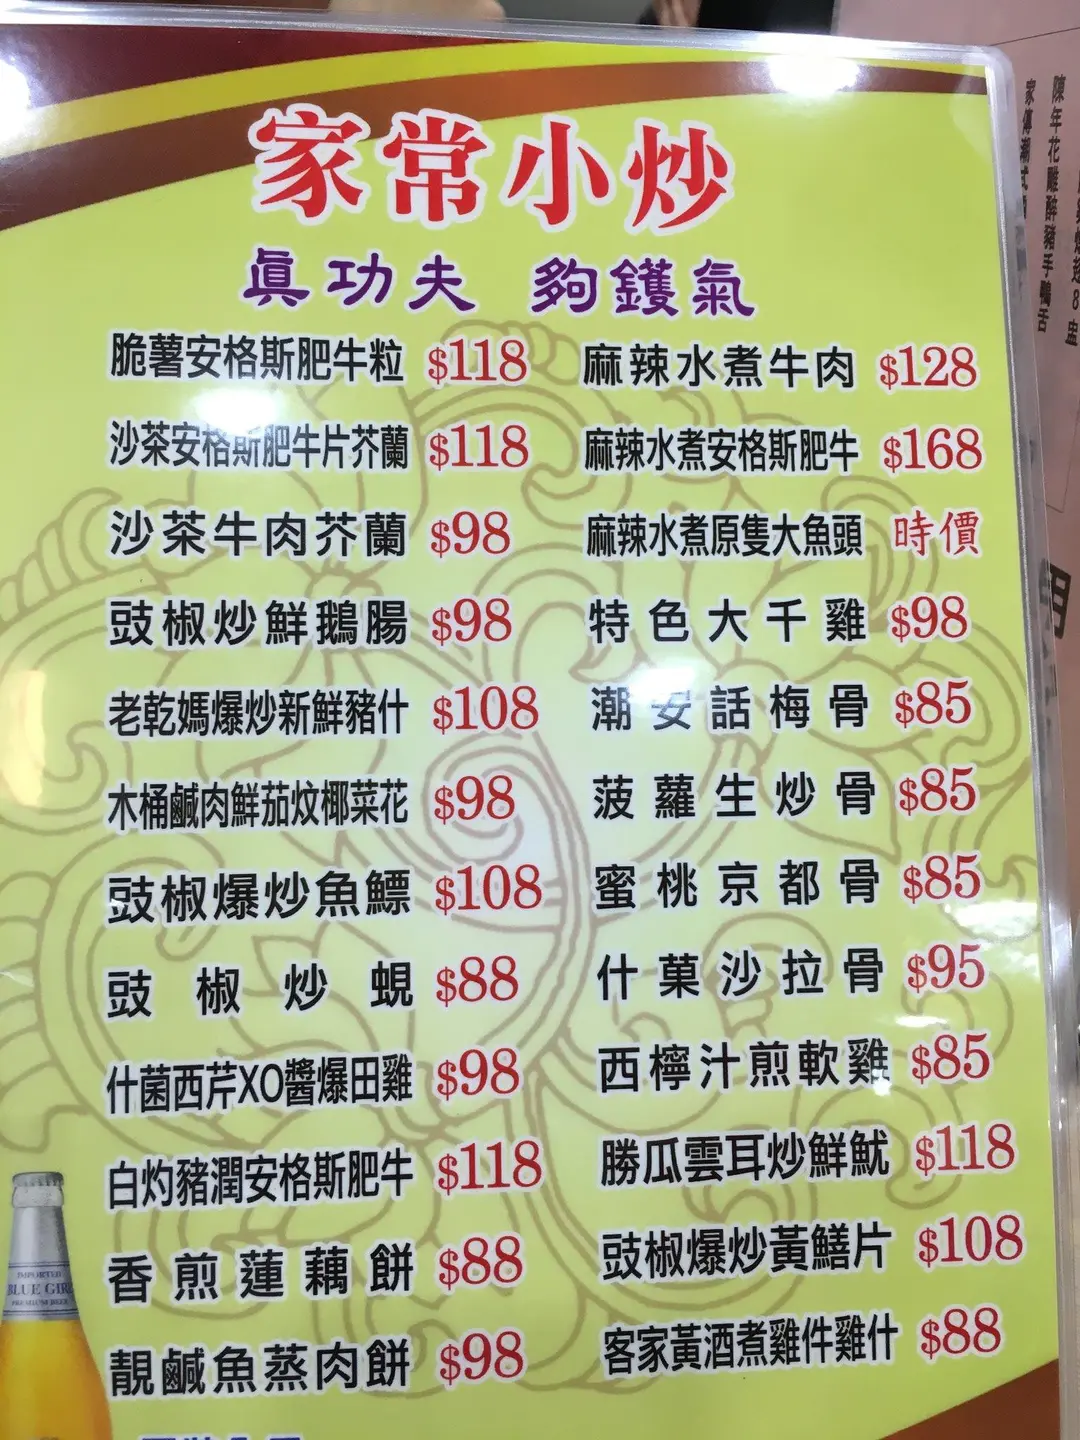 家常小炒
真功夫 夠鑊氣
脆薯安格斯肥牛粒 $118
沙茶安格斯肥牛片芥蘭 $118
沙茶牛肉芥蘭 $98
豉椒炒鮮鵝腸 $98
老乾媽爆炒新鮮豬什 $108
木桶鹹肉鮮茄炆椰菜花 $98
豉椒爆炒魚鰾 $108
豉椒炒蜆 $88
什菌西芹XO醬爆田雞 $98
白灼豬潤安格斯肥牛 $118
香煎蓮藕餅 $88
靚鹹魚蒸肉餅 $98
麻辣水煮牛肉 $128
麻辣水煮安格斯肥牛 $168
麻辣水煮原隻大魚頭 時價
特色大千雞 $98
潮安話梅骨 $85
菠蘿生炒骨 $85
蜜桃京都骨 $85
什菓沙拉骨 $95
西檸汁煎軟雞 $85
勝瓜雲耳炒鮮魷 $118
豉椒爆炒黃鱔片 $108
客家黃酒煮雞件雞什 $88
IMPORTED
BLUE GIRL
PREMIUM BEER
陳年花雕醉豬手鴨舌
家傳潮式